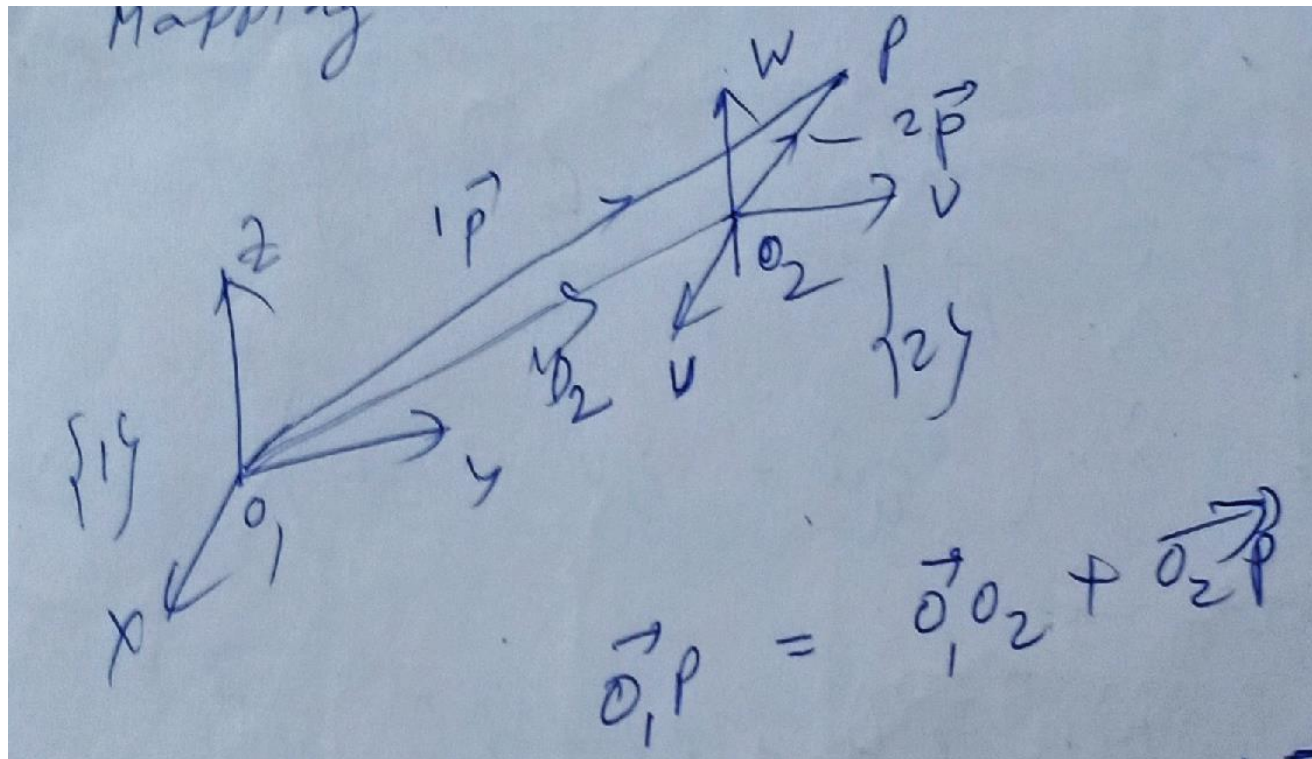 Mapping
W P
2p⃗
1p⃗
V
Z
O2
{2}
1O2
U
{1}
y
O1
X
O⃗1P = O⃗1O2 + O2P⃗